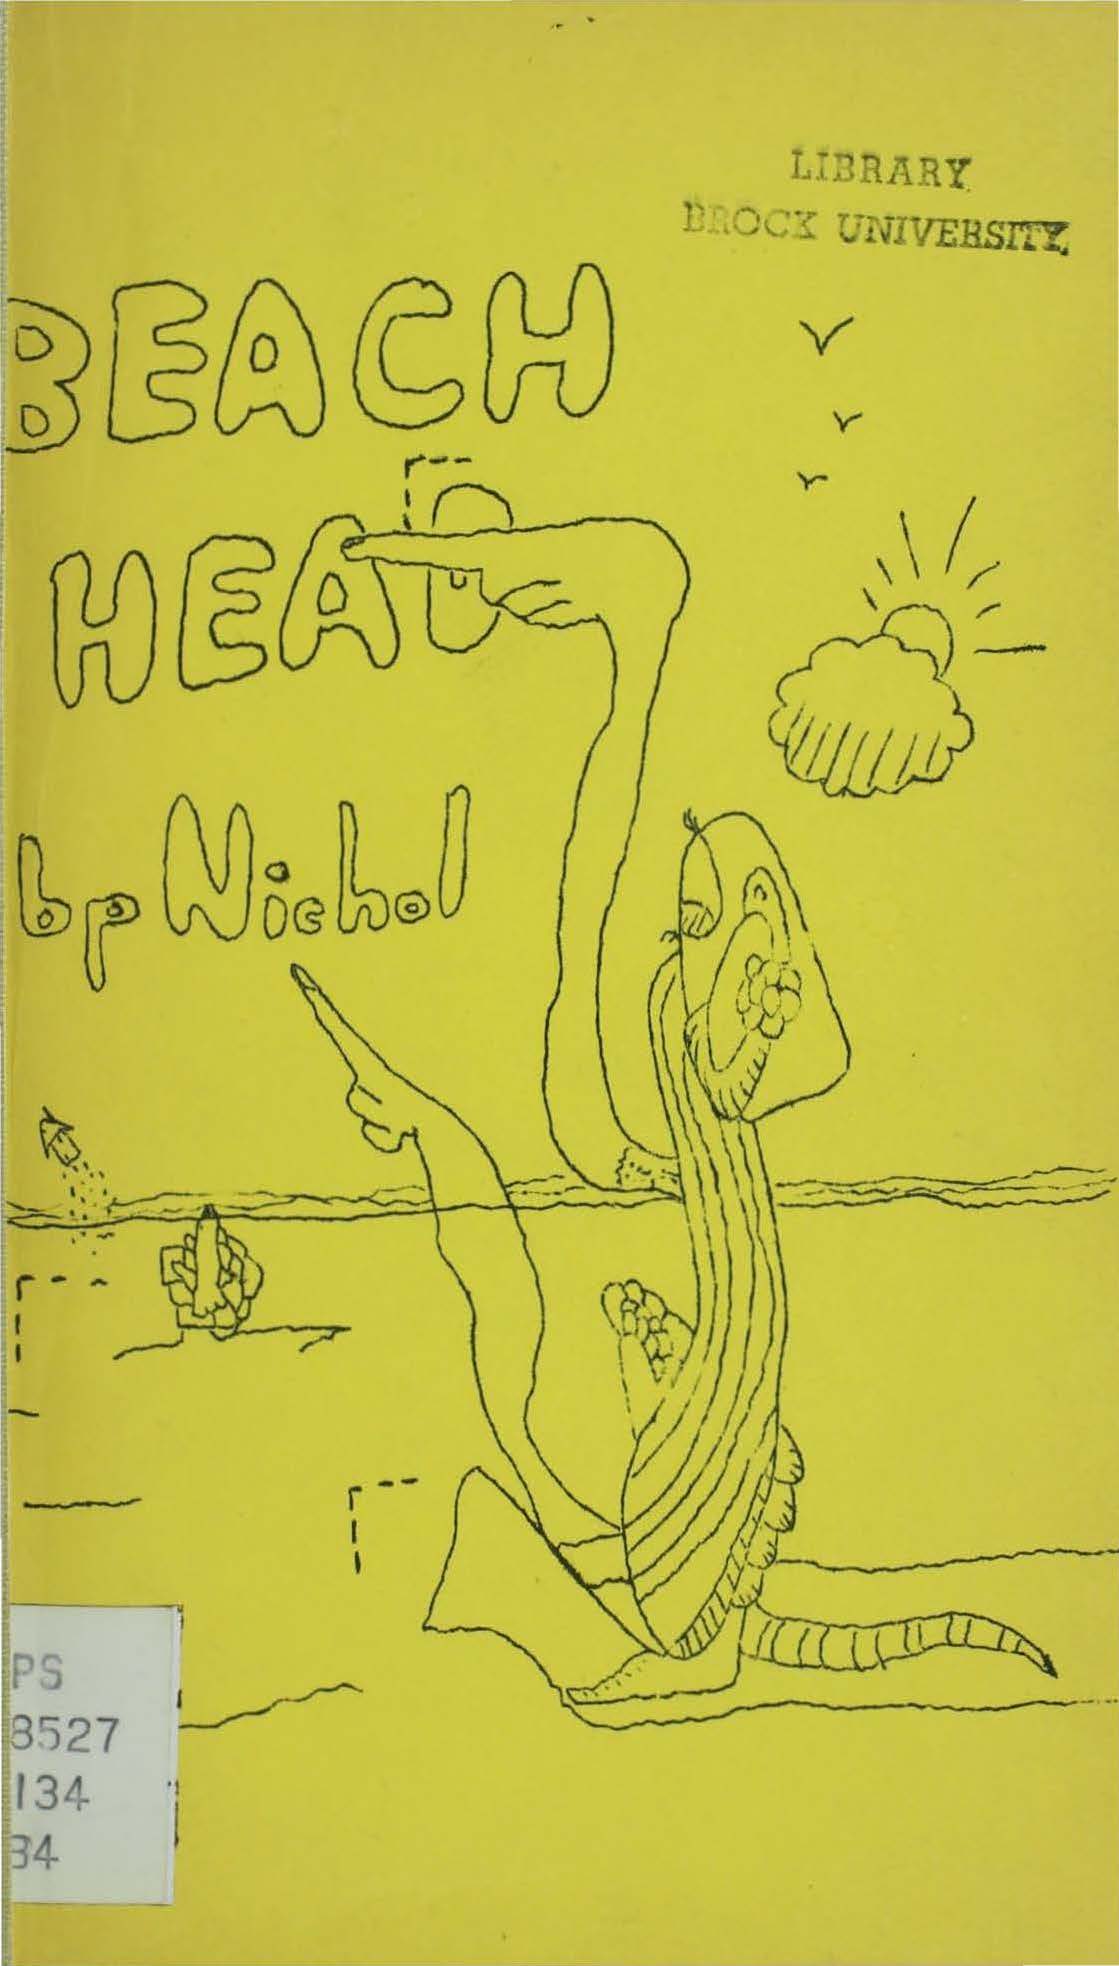 LIBRARY
BROCK UNIVERSITY
BEACH
HEAD
bp Nichol
PS
8527
I34
B4